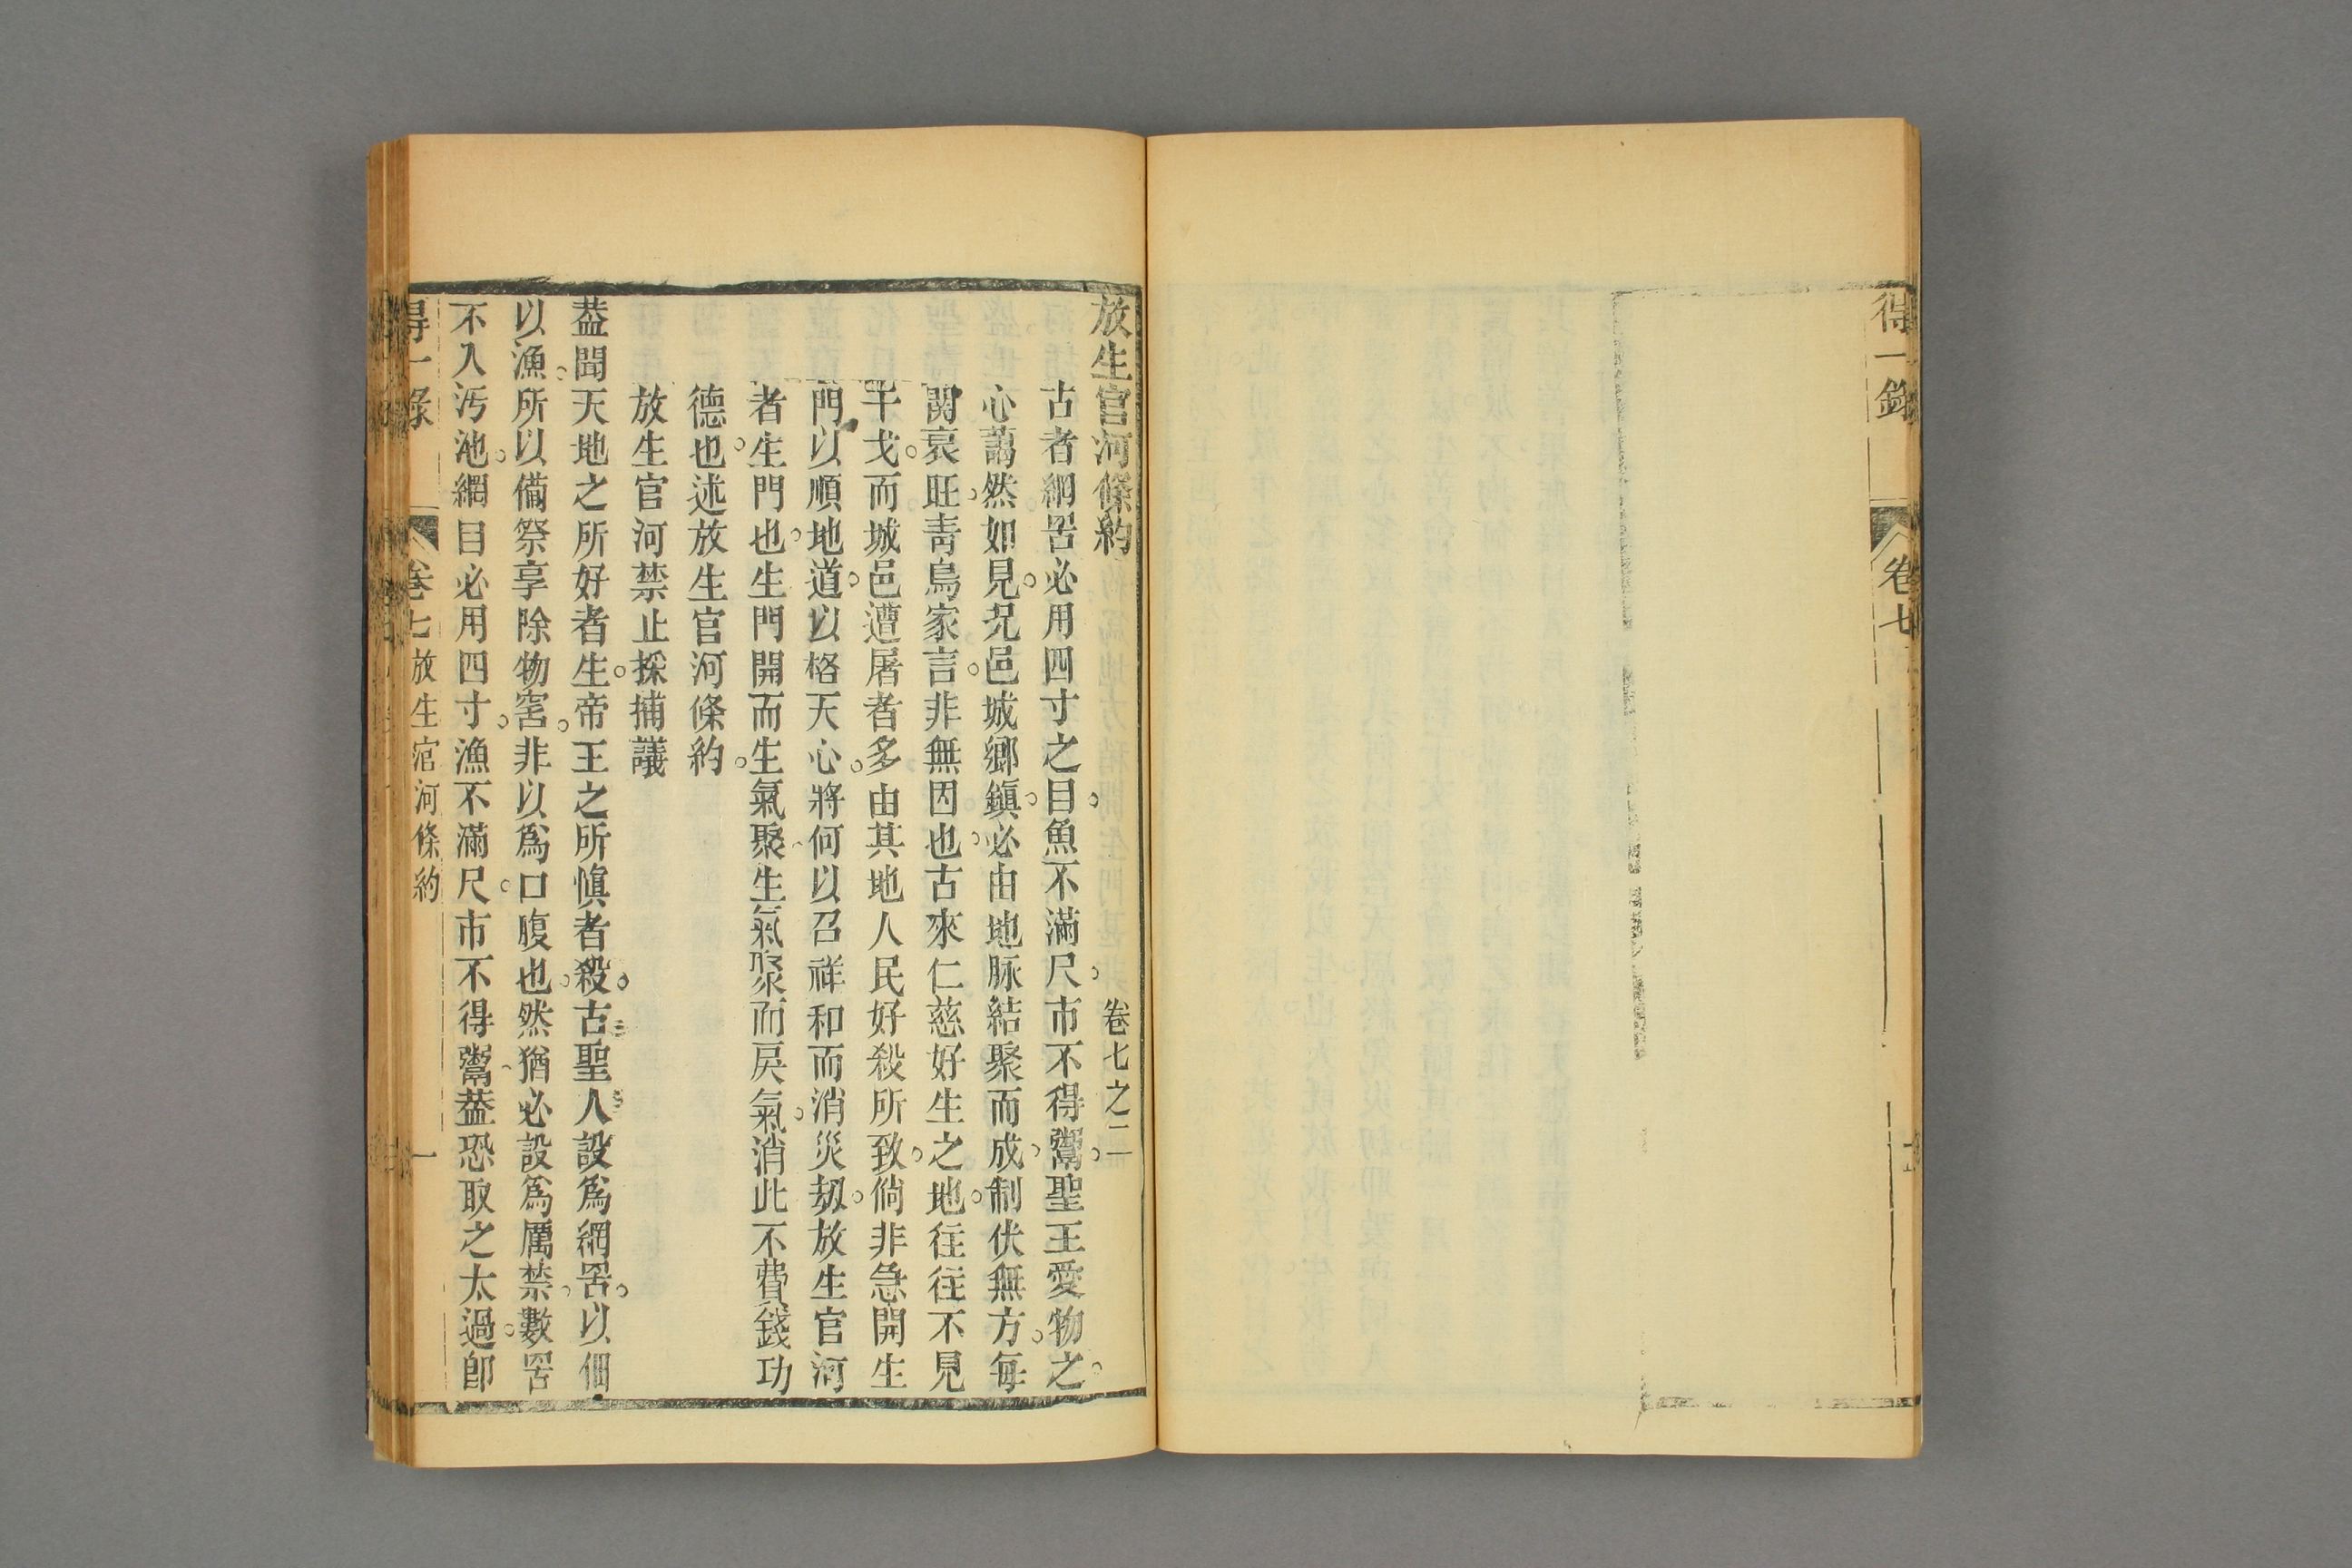 得一錄 卷七
放生官河條約 卷七之二
古者網罟必用四寸之目魚不滿尺市不得鬻聖王愛物之
心藹然如見況邑城鄉鎮必由地脉結聚而成制伏無方每
關衰旺靑烏家言非無因也古來仁慈好生之地往往不見
干戈而城邑遭屠者多由其地人民好殺所致倘非急開生
門以順地道以格天心將何以召祥和而消災刼放生官河
者生門也生門開而生氣聚生氣聚而戾氣消此不費錢功
德也述放生官河條約
放生官河禁止採捕議
葢聞天地之所好者生帝王之所愼者殺古聖人設爲網罟以佃
以漁所以備祭享除物害非以爲口腹也然猶必設爲厲禁數罟
不入汚池網目必用四寸漁不滿尺市不得鬻葢恐取之太過卽
得一錄 卷七放生官河條約 一